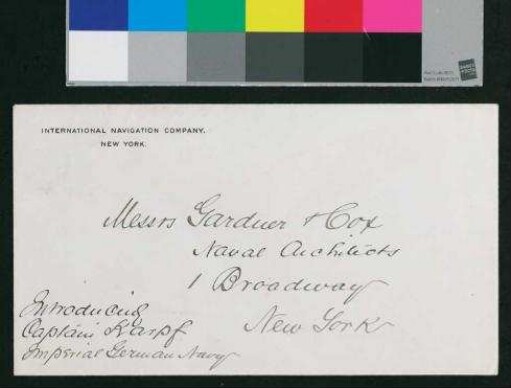 INTERNATIONAL NAVIGATION COMPANY.
NEW YORK.
Messrs Gardner & Cox
Naval Architects
1 Broadway
New York
Introducing
Captain Karpf
Imperial German Navy